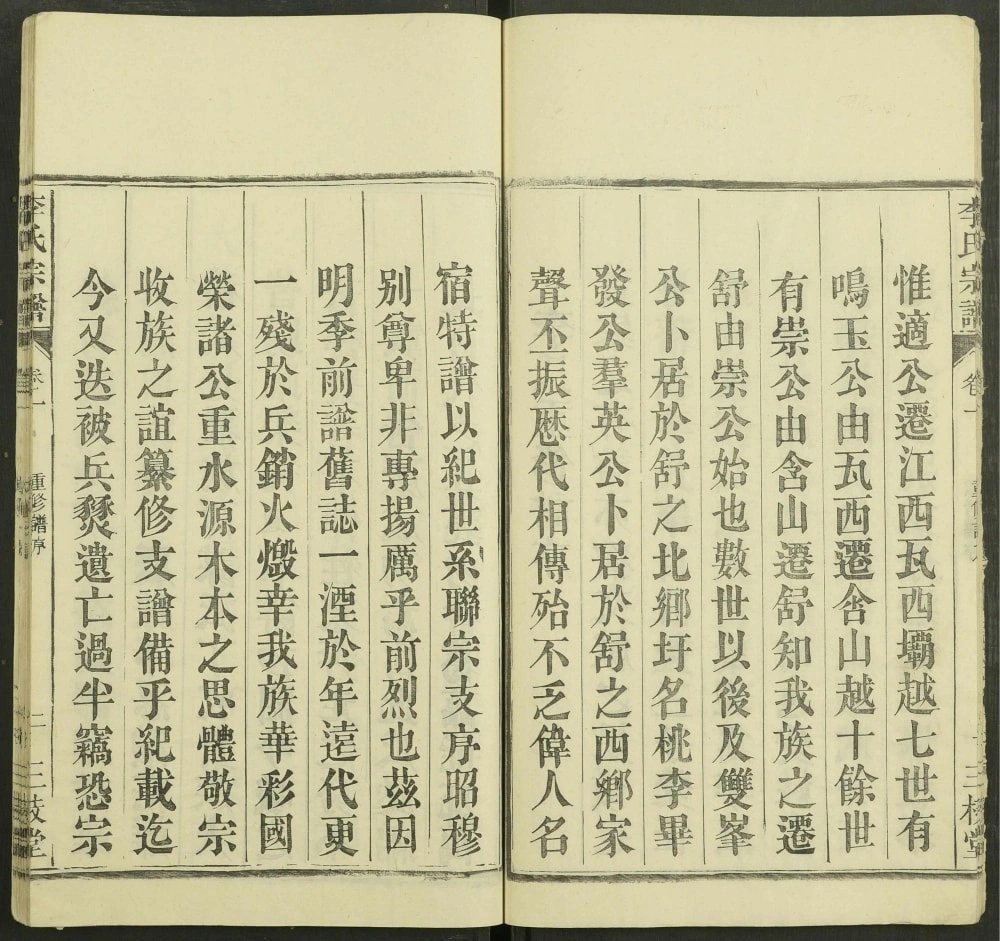 李氏宗譜
卷一
三槐堂
惟適公遷江西瓦西壩越七世有
鳴玉公由瓦西遷含山越十餘世
有崇公由含山遷舒知我族之遷
舒由崇公始也數世以後及雙峯
公卜居於舒之北鄉圩名桃李畢
發公羣英公卜居於舒之西鄉家
聲丕振歷代相傳殆不乏偉人名
宿特譜以紀世系聯宗支序昭穆
別尊卑非專揚厲乎前烈也茲因
明季前譜舊誌一湮於年遠代更
一殘於兵銷火燬幸我族華彩國
榮諸公重水源木本之思體敬宗
收族之誼纂修支譜備乎紀載迄
今又迭被兵燹遺亡過半竊恐宗
李氏宗譜
卷一
重修譜序
二
三槐堂